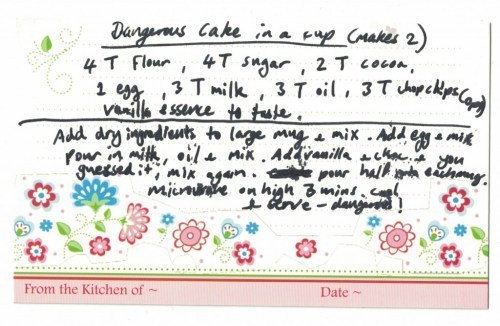 Dangerous Cake in a cup (makes 2)
4 T flour, 4 T sugar, 2 T cocoa,
1 egg, 3 T milk, 3 T oil, 3 T chopchips
vanilla essence to taste.
Add dry ingredients to large mug & mix. Add egg & mix
Pour in milk, oil & mix. Add vanilla & choc & you
guessed it, mix again. pour half into each mug.
microwave on high 3 mins. cool
& serve - dangerous!
From the Kitchen of ~ Date ~